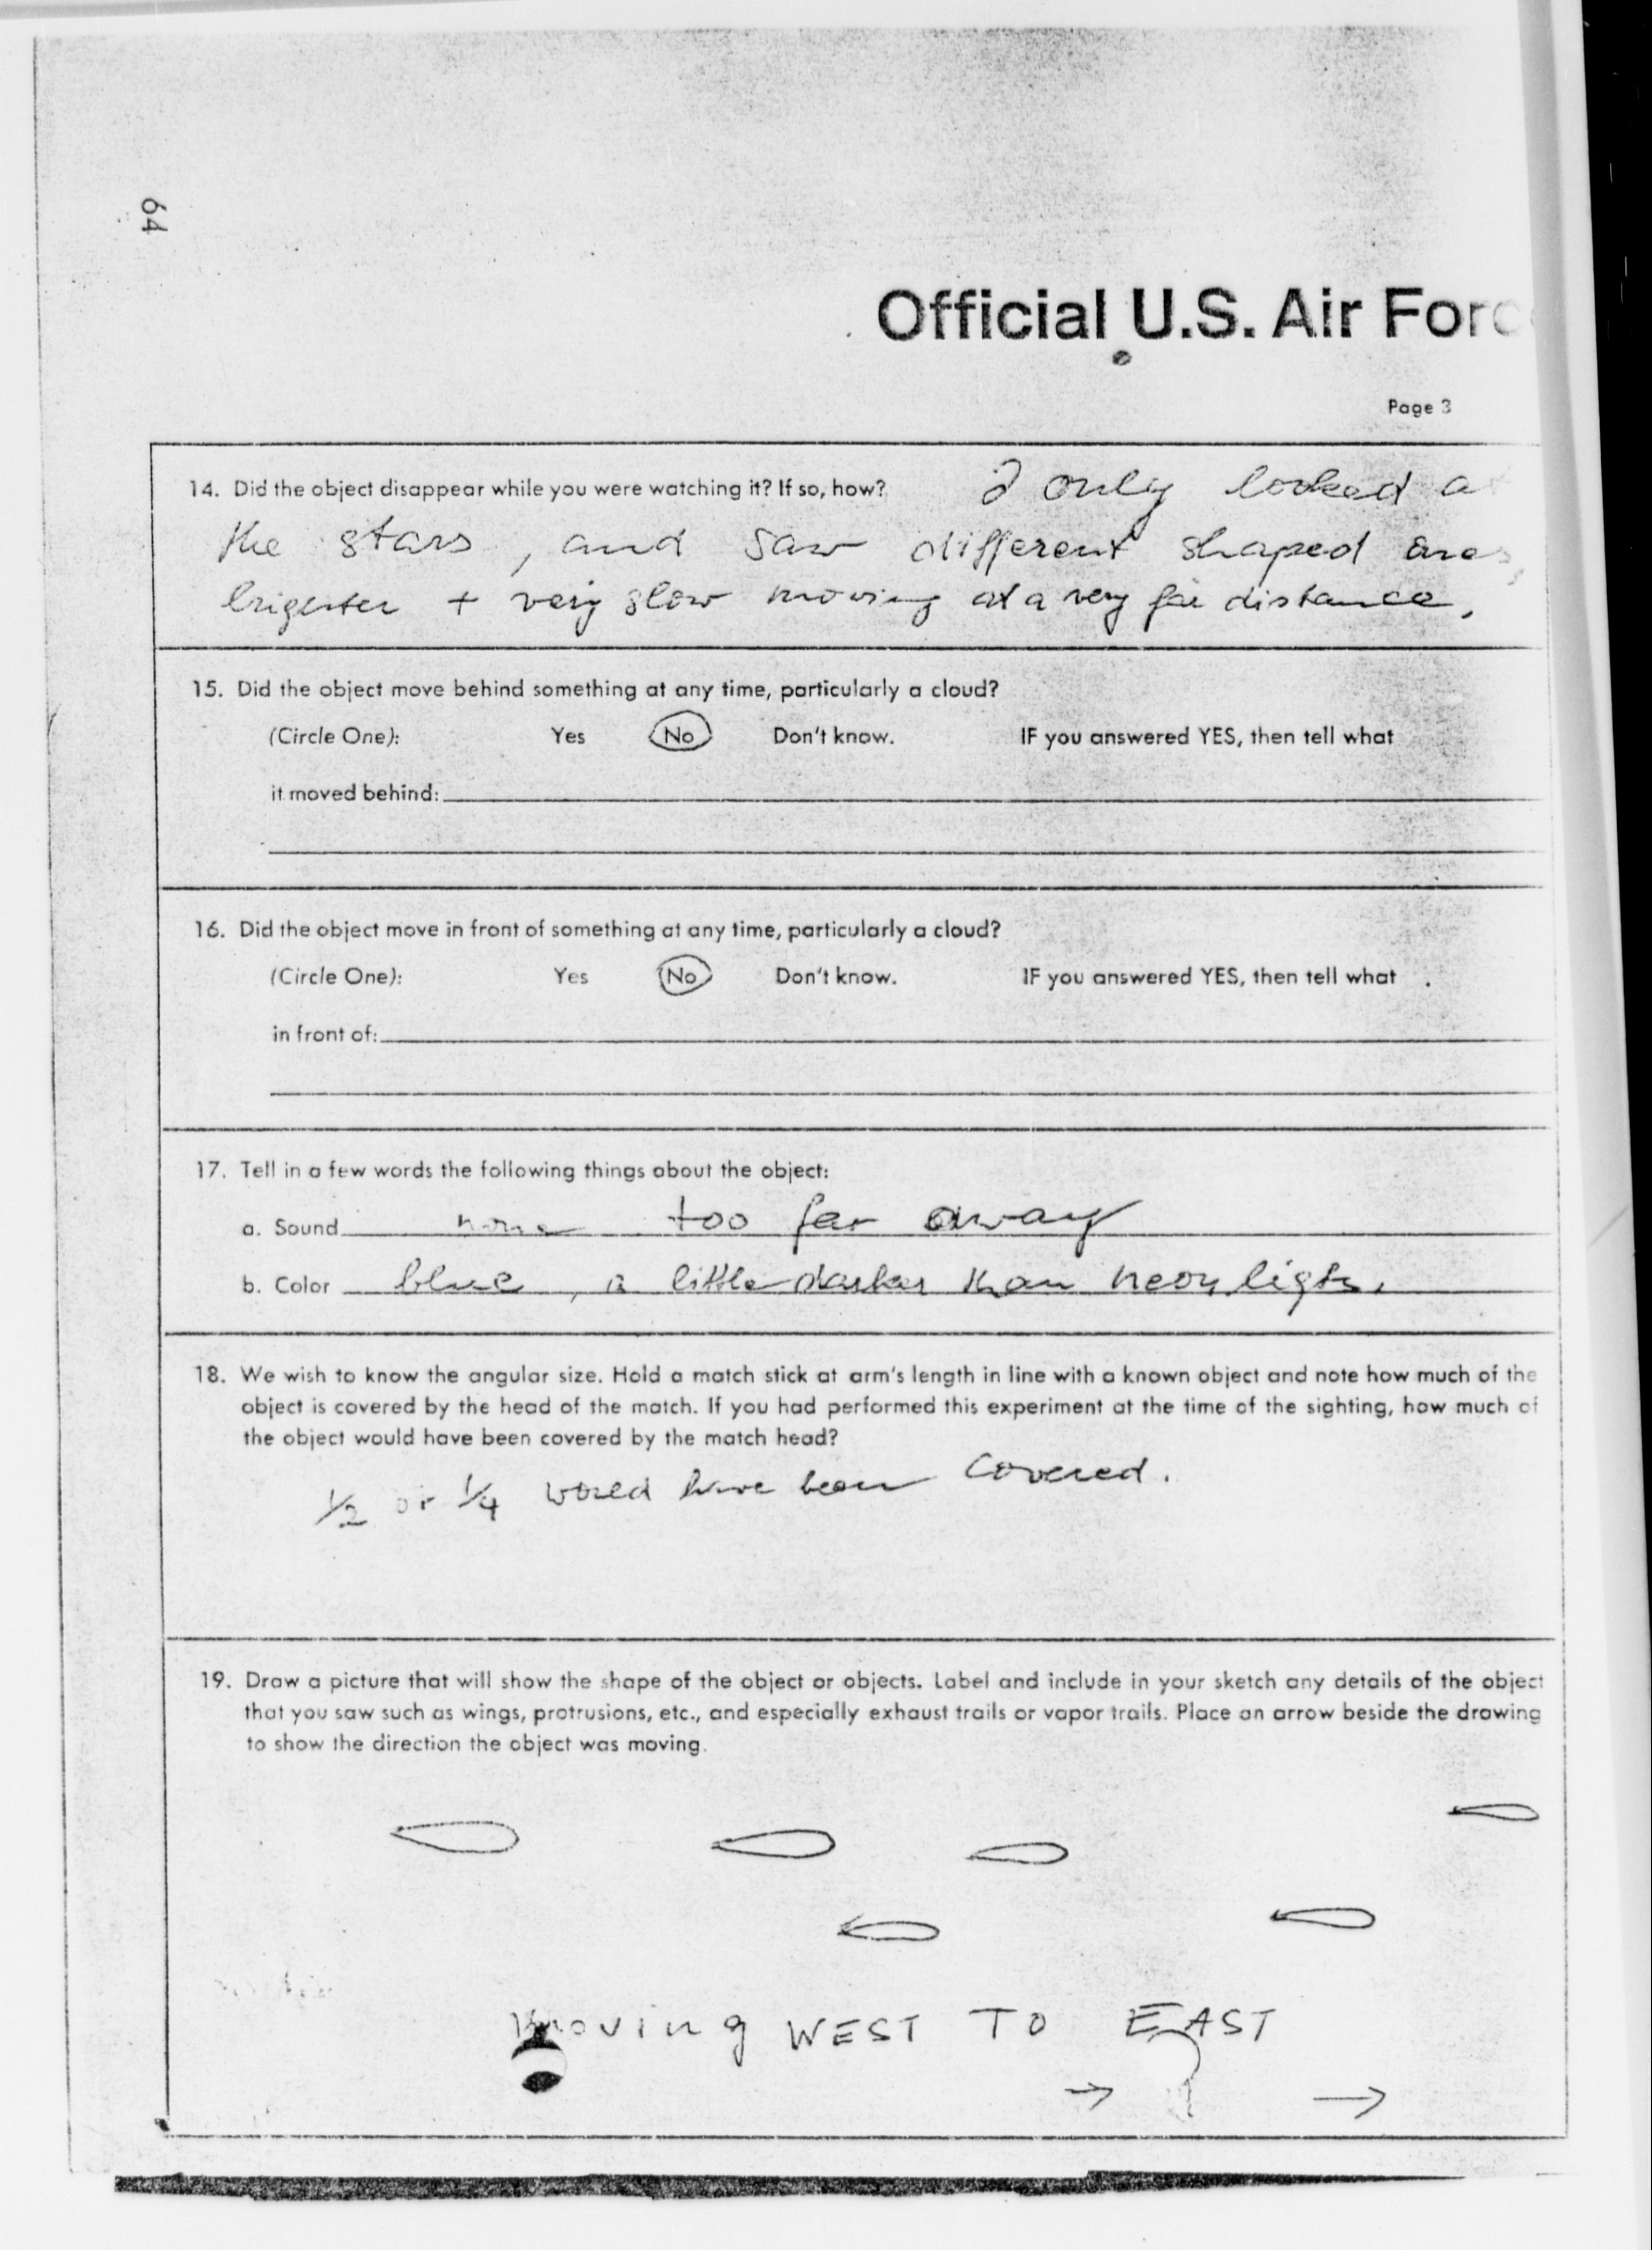 64
Official U.S. Air Forc
Page 3
14. Did the object disappear while you were watching it? If so, how? I only looked a
the stars, and saw different shaped ones,
brighter + very slow moving at a very far distance.
15. Did the object move behind something at any time, particularly a cloud?
(Circle One): Yes No Don't know. IF you answered YES, then tell what
it moved behind:
16. Did the object move in front of something at any time, particularly a cloud?
(Circle One): Yes No Don't know. IF you answered YES, then tell what
in front of:
17. Tell in a few words the following things about the object:
a. Sound none too far away
b. Color blue, a little darker than neon light.
18. We wish to know the angular size. Hold a match stick at arm's length in line with a known object and note how much of the
object is covered by the head of the match. If you had performed this experiment at the time of the sighting, how much of
the object would have been covered by the match head?
1/2 or 1/4 would have been covered.
19. Draw a picture that will show the shape of the object or objects. Label and include in your sketch any details of the object
that you saw such as wings, protrusions, etc., and especially exhaust trails or vapor trails. Place an arrow beside the drawing
to show the direction the object was moving.
moving WEST TO EAST